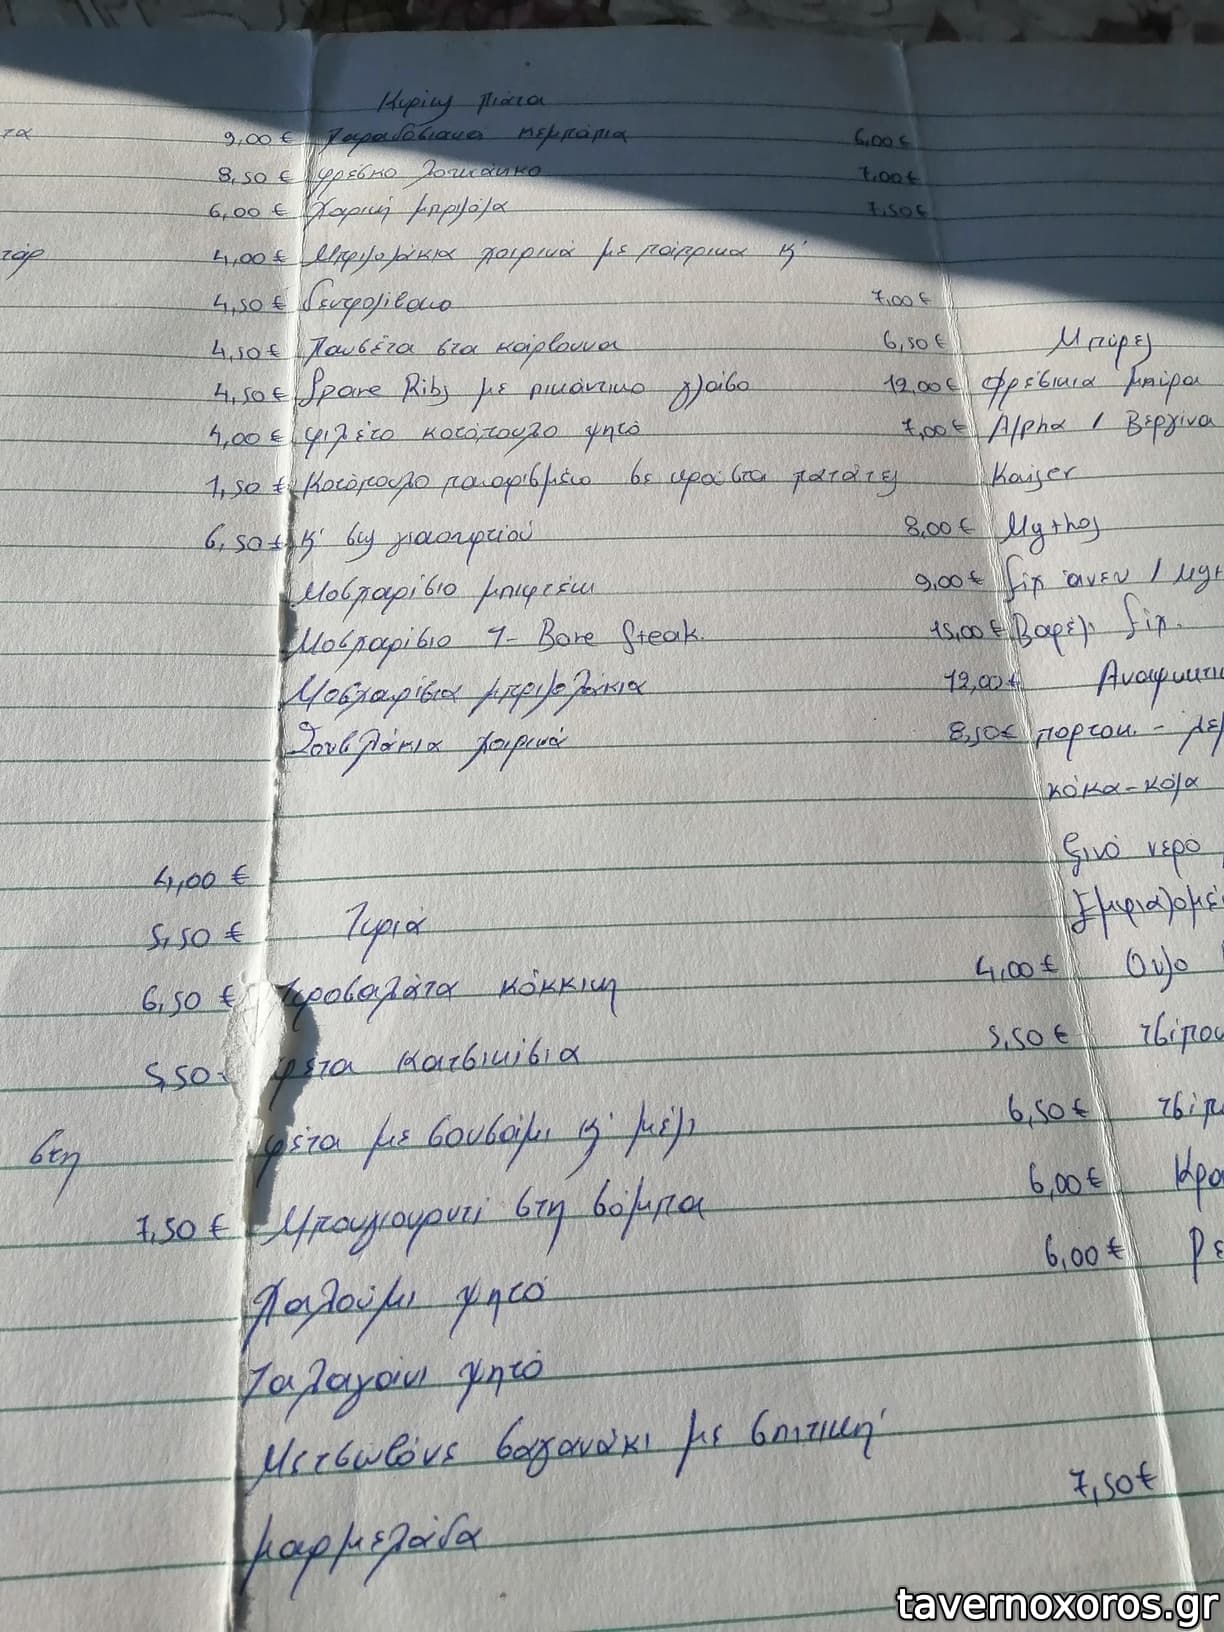 Κυρίως πιάτα
τα 9,00 € Παραδοσιακα κεμπάπια 6,00 €
8,50 € φρέσκο λουκάνικο 7,00 €
6,00 € Χοιρινή μπριζόλα 7,50 €
4,00 € Μπριζολάκια χοιρινά με πάπρικα κ'
4,50 € δεντρολίβανο 7,00 €
4,50 € Πανσέτα στα κάρβουνα 6,50 € Μπύρες
4,50 € Spare Ribs με πικάντικο γλάσο 12,00 € Φρέσκια μπύρα
4,00 € φιλέτο κοτόπουλο ψητό 7,00 € Alpha / Βεργίνα
1,50 € Κοτόπουλο παναρισμένο σε κρούστα πατάτες Kaiser
6,50 € κ' σως γιαουρτιού 8,00 € Mythos
Μοσχαρίσιο μπιφτέκι 9,00 € fix άνευ /
Μοσχαρίσιο T-Bone Steak. 15,00 € Βαρέλι fix.
Μοσχαρίσια μπριζολάκια 12,00 €
Σουβλάκια χοιρινά 8,50 € πορτοκ. -
κόκα-κόλα
4,00 € ξινό νερό
5,50 € Τυριά
6,50 € Τυροσαλάτα κόκκινη 4,00 € Ουζο
5,50 φέτα κατσικίσια 5,50 €
στη φέτα με σουσάμι κ' μέλι 6,50 €
7,50 € Μπουγιουρντί στη σόμπα 6,00 €
Χαλούμι ψητό 6,00 €
Ταλαγάνι ψητό
Μετσοβόνε σαγανάκι με σπιτική
μαρμελάδα 7,50 €
tavernoxoros.gr